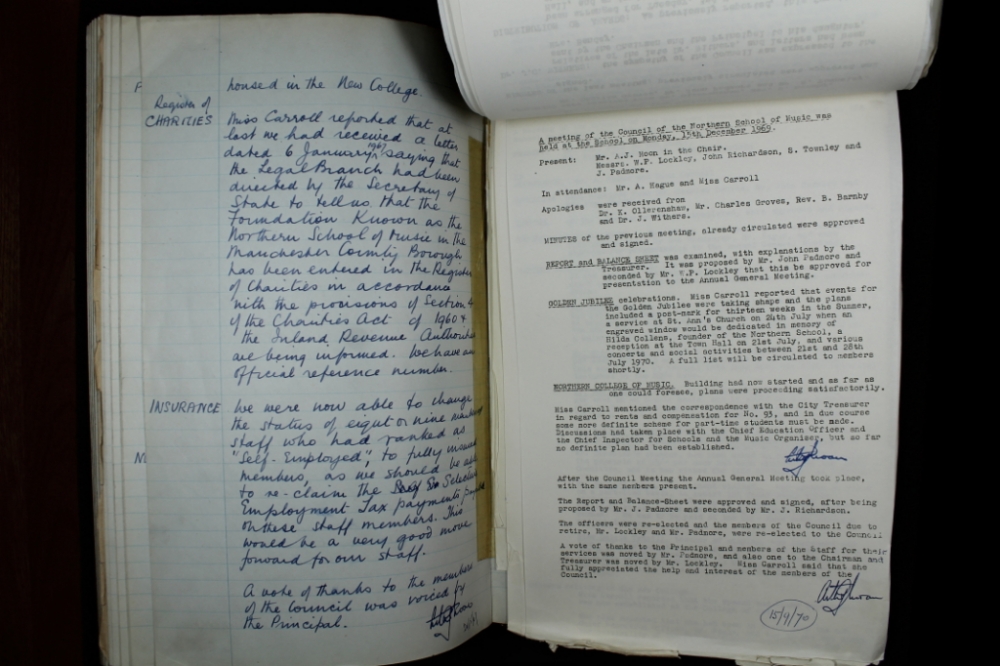 housed in the New College.
Register of
CHARITIES
Miss Carroll reported that at
last we had received a letter
dated 6 January, 1967 saying that
the Legal Branch had been
directed by the Secretary of
State to tell us that the
Foundation Known as the
Northern School of Music in the
Manchester County Borough
has been entered in the Register
of Charities in accordance
with the provisions of Section 4
of the Charities Act of 1960 &
the Inland Revenue Authorities
are being informed. We have an
official reference number.
INSURANCE
We were now able to change
the status of eight or nine
staff who had ranked as
"Self-Employed", to fully insured
members, as we should be able
to re-claim the Selective
Employment Tax payments
on these staff members. This
would be a very good move
forward for our staff.
A vote of thanks to the members
of the Council was voiced by
the Principal.
A meeting of the Council of the Northern School of Music was
held at the School on Monday, 15th December 1969.
Present: Mr. A.J. Roon in the Chair.
Messrs. W.F. Lockley, John Richardson, S. Townley and
J. Padmore.
In attendance: Mr. A. Hague and Miss Carroll
Apologies were received from
Dr. K. Ollerenshaw, Mr. Charles Groves, Rev. B. Barnby
and Dr. J. Withers.
MINUTES of the previous meeting, already circulated were approved
and signed.
REPORT and BALANCE SHEET was examined, with explanations by the
Treasurer. It was proposed by Mr. John Padmore and
seconded by Mr. W.F. Lockley that this be approved for
presentation to the Annual General Meeting.
GOLDEN JUBILEE celebrations. Miss Carroll reported that events for
the Golden Jubilee were taking shape and the plans
included a post-mark for thirteen weeks in the Summer,
a service at St. Ann's Church on 24th July when an
engraved window would be dedicated in memory of
Hilda Collens, founder of the Northern School, a
reception at the Town Hall on 21st July, and various
concerts and social activities between 21st and 28th
July 1970. A full list will be circulated to members
shortly.
NORTHERN COLLEGE OF MUSIC. Building had now started and as far as
one could foresee, plans were proceeding satisfactorily.
Miss Carroll mentioned the correspondence with the City Treasurer
in regard to rents and compensation for No. 93, and in due course
some more definite scheme for part-time students must be made.
Discussions had taken place with the Chief Education Officer and
the Chief Inspector for Schools and the Music Organiser, but so far
no definite plan had been established.
After the Council Meeting the Annual General Meeting took place,
with the same members present.
The Report and Balance-Sheet were approved and signed, after being
proposed by Mr. J. Padmore and seconded by Mr. J. Richardson.
The officers were re-elected and the members of the Council due to
retire, Mr. Lockley and Mr. Padmore, were re-elected to the Council
A vote of thanks to the Principal and members of the Staff for their
services was moved by Mr. Padmore, and also one to the Chairman and
Treasurer was moved by Mr. Lockley. Miss Carroll said that she
fully appreciated the help and interest of the members of the
Council.
15/9/70